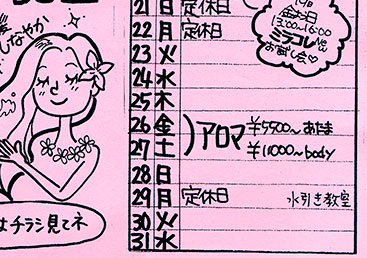 しなやか
21 日 定休日
22 月 定休日
23 火
24 水
25 木
26 金 ) アロマ ¥5500〜あたま
27 土 ¥11000〜body
28 日
29 月 定休日 水引き教室
30 火
31 水
13:00〜16:00
ミラコレNo.
お試し会♡
はチラシ見てネ